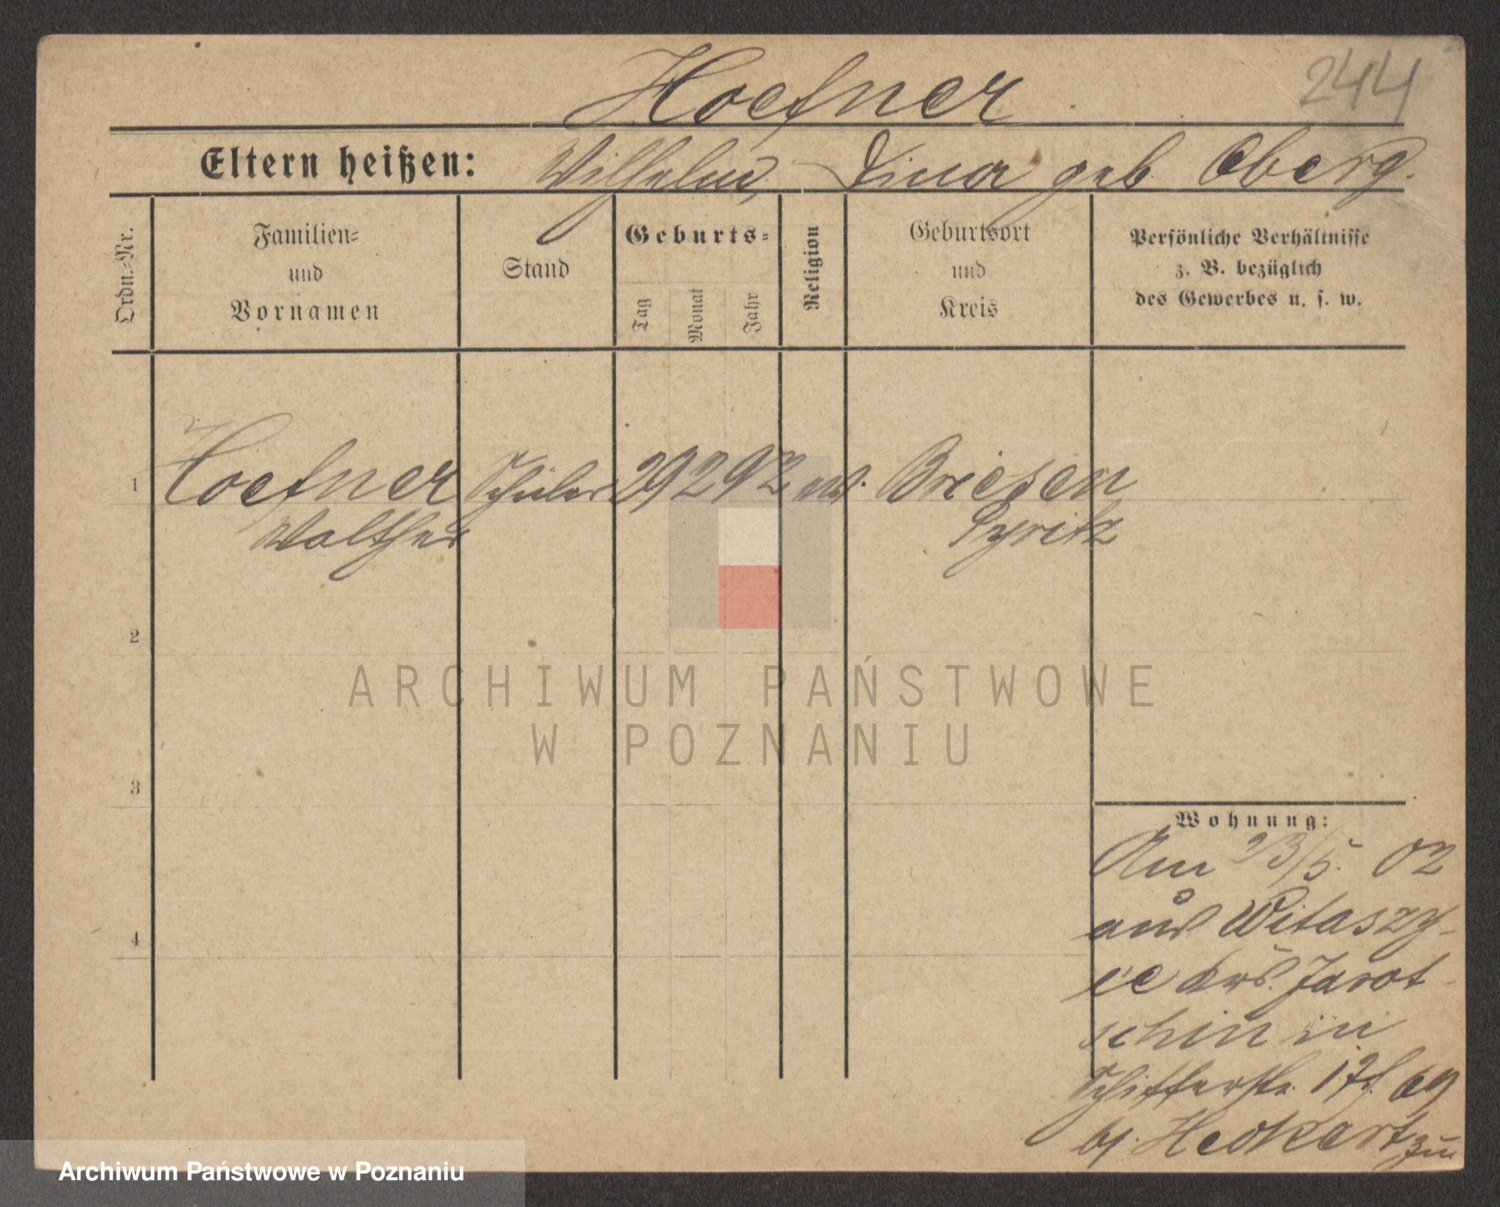 244
Hoefner
Eltern heißen: Wilhelm, Dina geb Oberg.
Ordn.-Nr.
Familien-
und
Vornamen
Stand
Geburts-
Tag
Monat
Jahr
Religion
Geburtsort
und
Kreis
Persönliche Verhältnisse
z. B. bezüglich
des Gewerbes u. s. w.
1 Hoefner Schüler 29 2 92 Briesen
Walther Pyritz
2
3
4
Wohnung:
Am 23/5. 02
aus Witaszy-
ce Krs. Jarot-
schin in
17
Heckert
ARCHIWUM PAŃSTWOWE
W POZNANIU
Archiwum Państwowe w Poznaniu